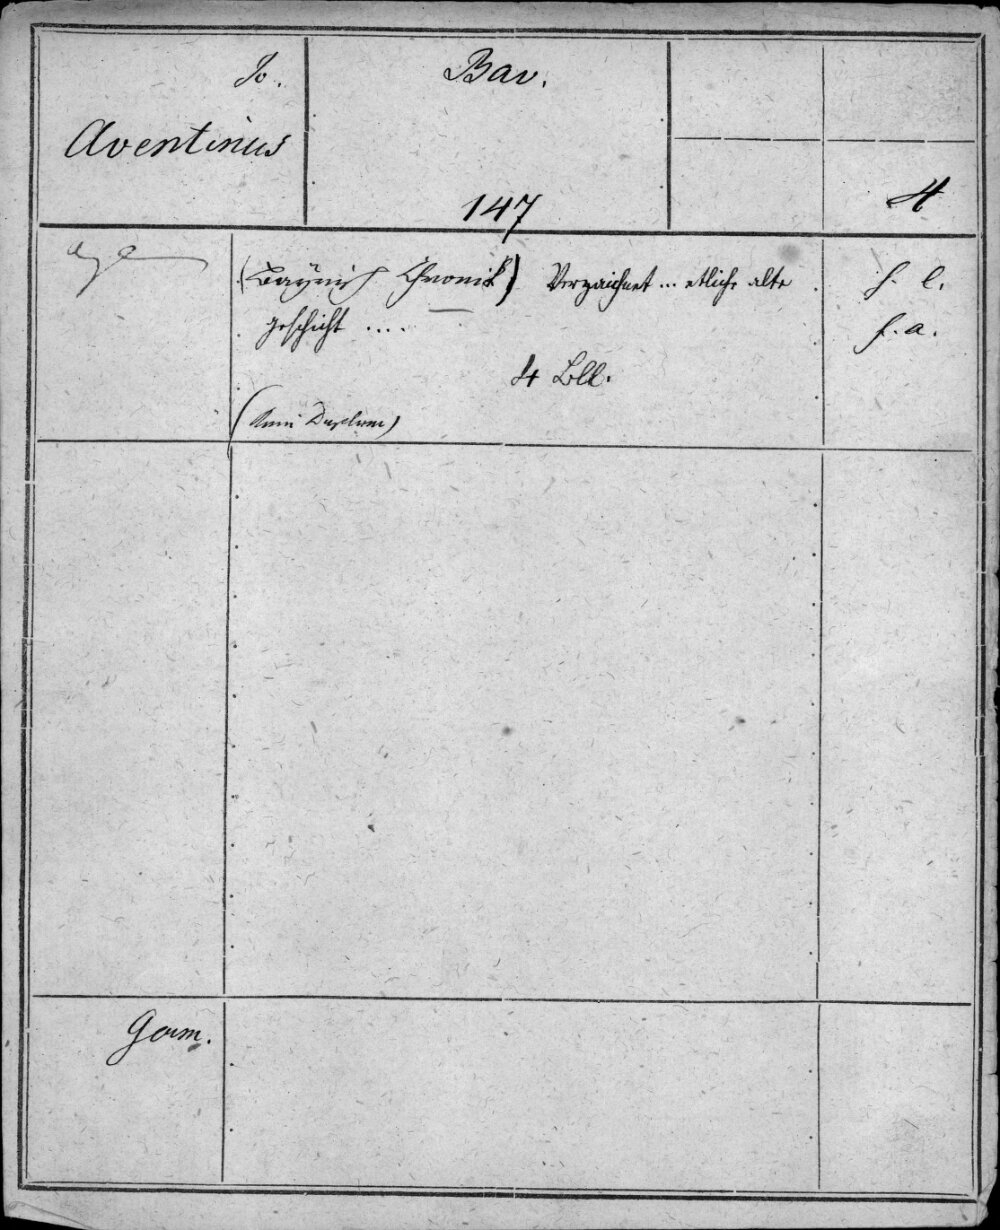 Jo.
Aventinus
Bav.
147
4
(Bayrisch Chronik) Verzaichnet ... etliche alte
geschicht ....
s. l.
s. a.
4 Bll.
(Anni Duplum)
Germ.